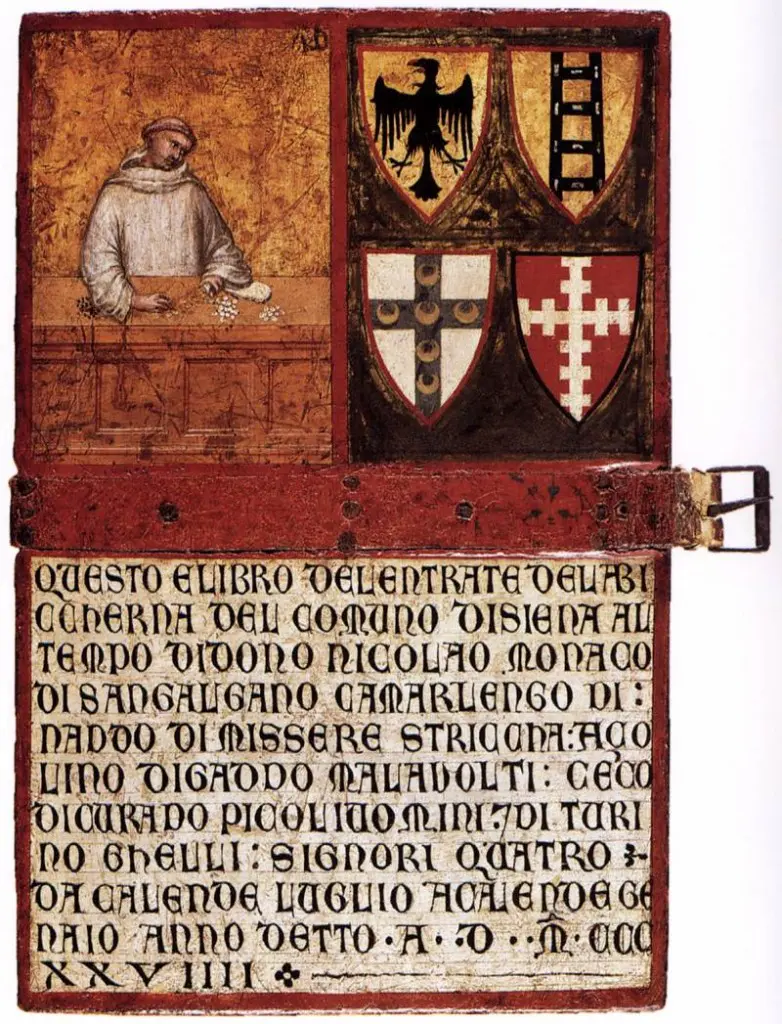 QUESTO E LIBRO DELENTRATE DELABI
CCHERNA DEL COMUNO DISIENA AL
TEMPO DIDONO NICOLAO MONACO
DI SANGALIGANO CAMARLENGO DI:
NANDO DI MISSERE STRICCHA: AÇO
LINO DIGADDO MALAVOLTI: CECO
DICURADO PICOLIUOMINI: ⁊DI TURI
NO GHELLI: SIGNORI QUATRO
DA CALENDE LUGLIO A CALENDE GE
NAIO ANNO DETTO · A · D · · M̄ · CCC
XXVIIII